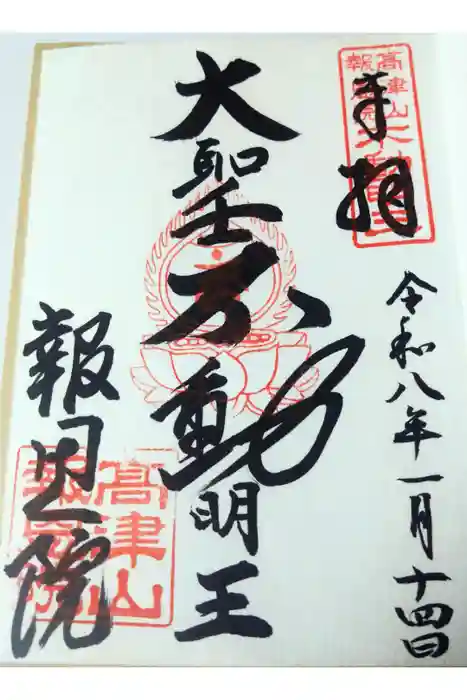 奉拝
令和八年一月十四日
大聖不動明王
報恩院
高津山
報恩院
高津山